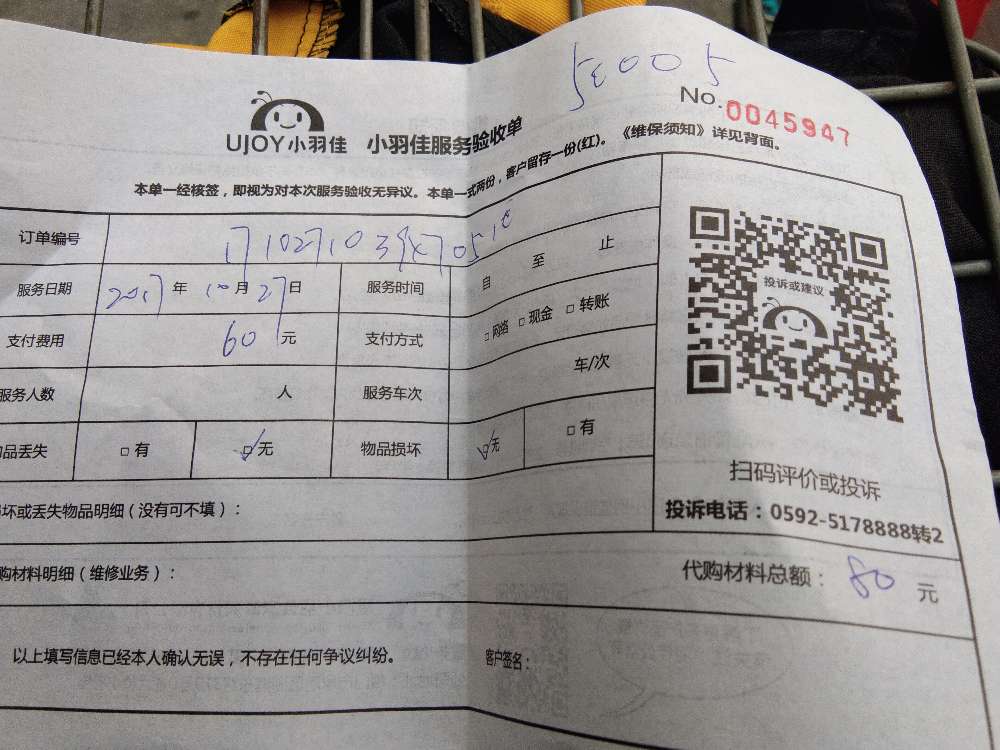 5
No.0045947
UJOY小羽佳 小羽佳服务验收单
本单一经核签，即视为对本次服务验收无异议。本单一式两份，客户留存一份(红)。《维保须知》详见背面。
订单编号
服务日期 2017年 10月27日 服务时间 自 至 止
支付费用 60元 支付方式 □网络 □现金 □转账
服务人数 人 服务车次 车/次
品丢失 □有 ☑无 物品损坏 ☑无 □有
投诉或建议
扫码评价或投诉
投诉电话：0592-5178888转2
坏或丢失物品明细（没有可不填）：
购材料明细（维修业务）： 代购材料总额： 80 元
以上填写信息已经本人确认无误，不存在任何争议纠纷。 客户签名：